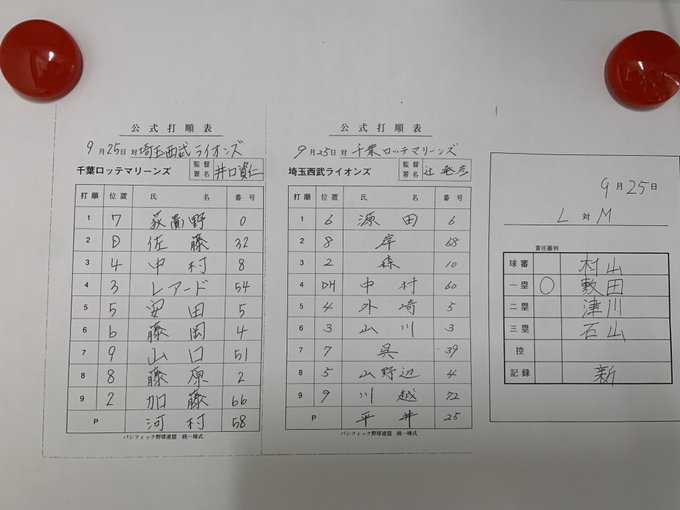 公式打順表
9月25日 対 埼玉西武ライオンズ
千葉ロッテマリーンズ 監督署名 井口資仁
打順 位置 氏名 番号
1 7 荻貴野 0
2 D 佐藤 32
3 4 中村 8
4 3 レアード 54
5 5 安田 5
6 6 藤岡 4
7 9 山口 51
8 8 藤原 2
9 2 加藤 66
P 河村 58
パシフィック野球連盟 統一様式
公式打順表
9月25日 対 千葉ロッテマリーンズ
埼玉西武ライオンズ 監督署名 辻発彦
打順 位置 氏名 番号
1 6 源田 6
2 8 岸 68
3 2 森 10
4 DH 中村 60
5 4 外崎 5
6 3 山川 3
7 7 呉 39
8 5 山野辺 4
9 9 川越 72
P 平井 25
パシフィック野球連盟 統一様式
9月25日
L 対 M
責任審判
球審 村山
一塁 ○ 敷田
二塁 津川
三塁 石山
控
記録 新